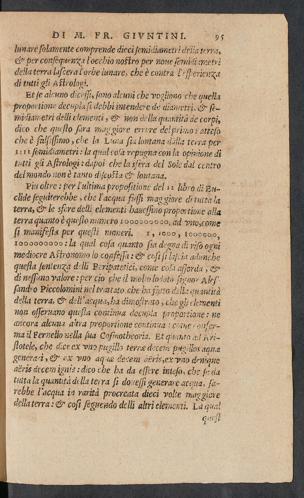 DI M. FR. GIVNTINI. 95
lunare solamente comprende dieci semidiametri della terra,
& per conseguenza l'occhio nostro per noue semidiametri
della terra lascera l'orbe lunare, che è contra l'esperienza
di tutti gli Astrologi.
Et se alcuno dicessi, sono alcuni che vogliono che quella
proportione decupla si debbi intendere de diametri, & se-
midiametri delli elementi, & non della quantità de corpi,
dico che questo sara maggiore errore del primo: atteso
che è falsissimo, che la Luna sia lontana dalla terra per
1111 semidiametri: la qual cosa repugna con la opinione di
tutti gli Astrologi: dapoi che la sfera del Sole dal centro
del mondo non è tanto discosta & lontana.
Piu oltre: per l'ultima propositione del 12 libro di Eu-
clide seguiterebbe, che l'acqua fussi maggiore di tutta la
terra, & le sfere delli elementi hauessino proportione alla
terra quanto è questo numero 1000000000. ad vno, come
si manifesta per questi numeri. 1, 1000, 1000000,
1000000000: la qual cosa quanto sia degna di riso ogni
mediocre Astronomo lo confessa: & cosi si lascia adunche
questa sentenza delli Peripatetici, come cosa assorda, &
di nessuno valore: per cio che il molto dotto signor Ales-
sandro Piccolomini nel trattato che ha fatto della quantità
della terra, & dell'acqua, ha dimostrato, che gli elementi
non osseruano questa continua decupla proportione: ne
ancora alcuna altra proportione continua: come confer-
ma il Fernelio nella sua Cosmotheoria. Et quanto ad Ari-
stotele, che dice ex vno pugillo terræ decem pugillos aquæ
generari, & ex vno aquæ decem aëris, ex vno denique
aëris decem ignis: dico che ha da essere inteso, che se da
tutta la quantità della terra si douessi generare acqua, sa-
rebbe l'acqua in rarità procreata dieci volte maggiore
della terra: & cosi seguendo delli altri elementi. La qual
quest